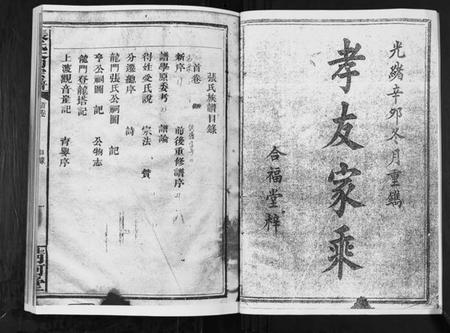 光緒辛卯冬月重鐫
孝友家乘
合福堂梓
張氏族譜目錄
首卷
新序 前後重修譜序
譜學原委考 譜論
得姓受氏說 宗法 贊
分遷總序 詩
龍門張氏公祠圖 記
亭公祠圖 記 公物志
龍門登龍塔記
上波觀音崖記